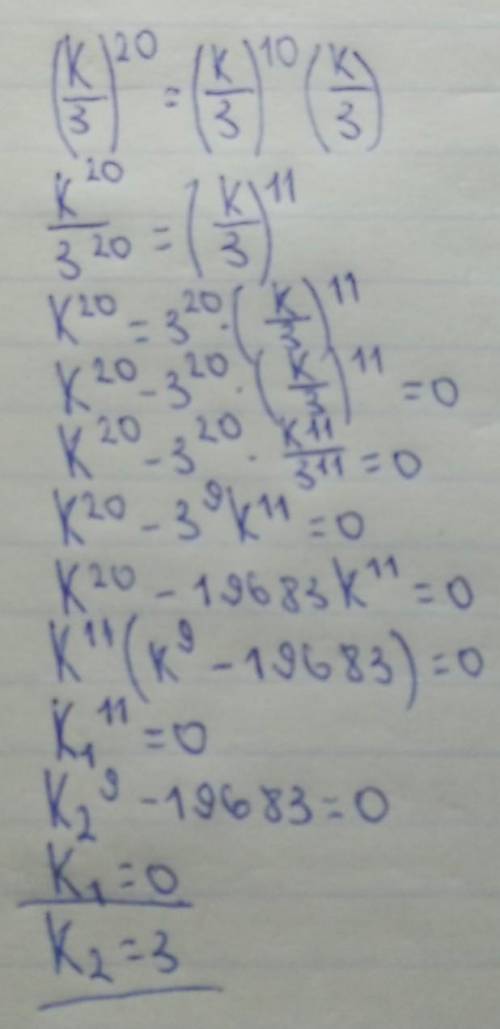 (K/3)^20 = (K/3)^10 (K/3)
K^20/3^20 = (K/3)^11
K^20 = 3^20 · (K/3)^11
K^20 - 3^20 · (K/3)^11 = 0
K^20 - 3^20 · K^11/3^11 = 0
K^20 - 3^9 K^11 = 0
K^20 - 19683K^11 = 0
K^11 (K^9 - 19683) = 0
K_1^11 = 0
K_2^9 - 19683 = 0
K_1 = 0
K_2 = 3